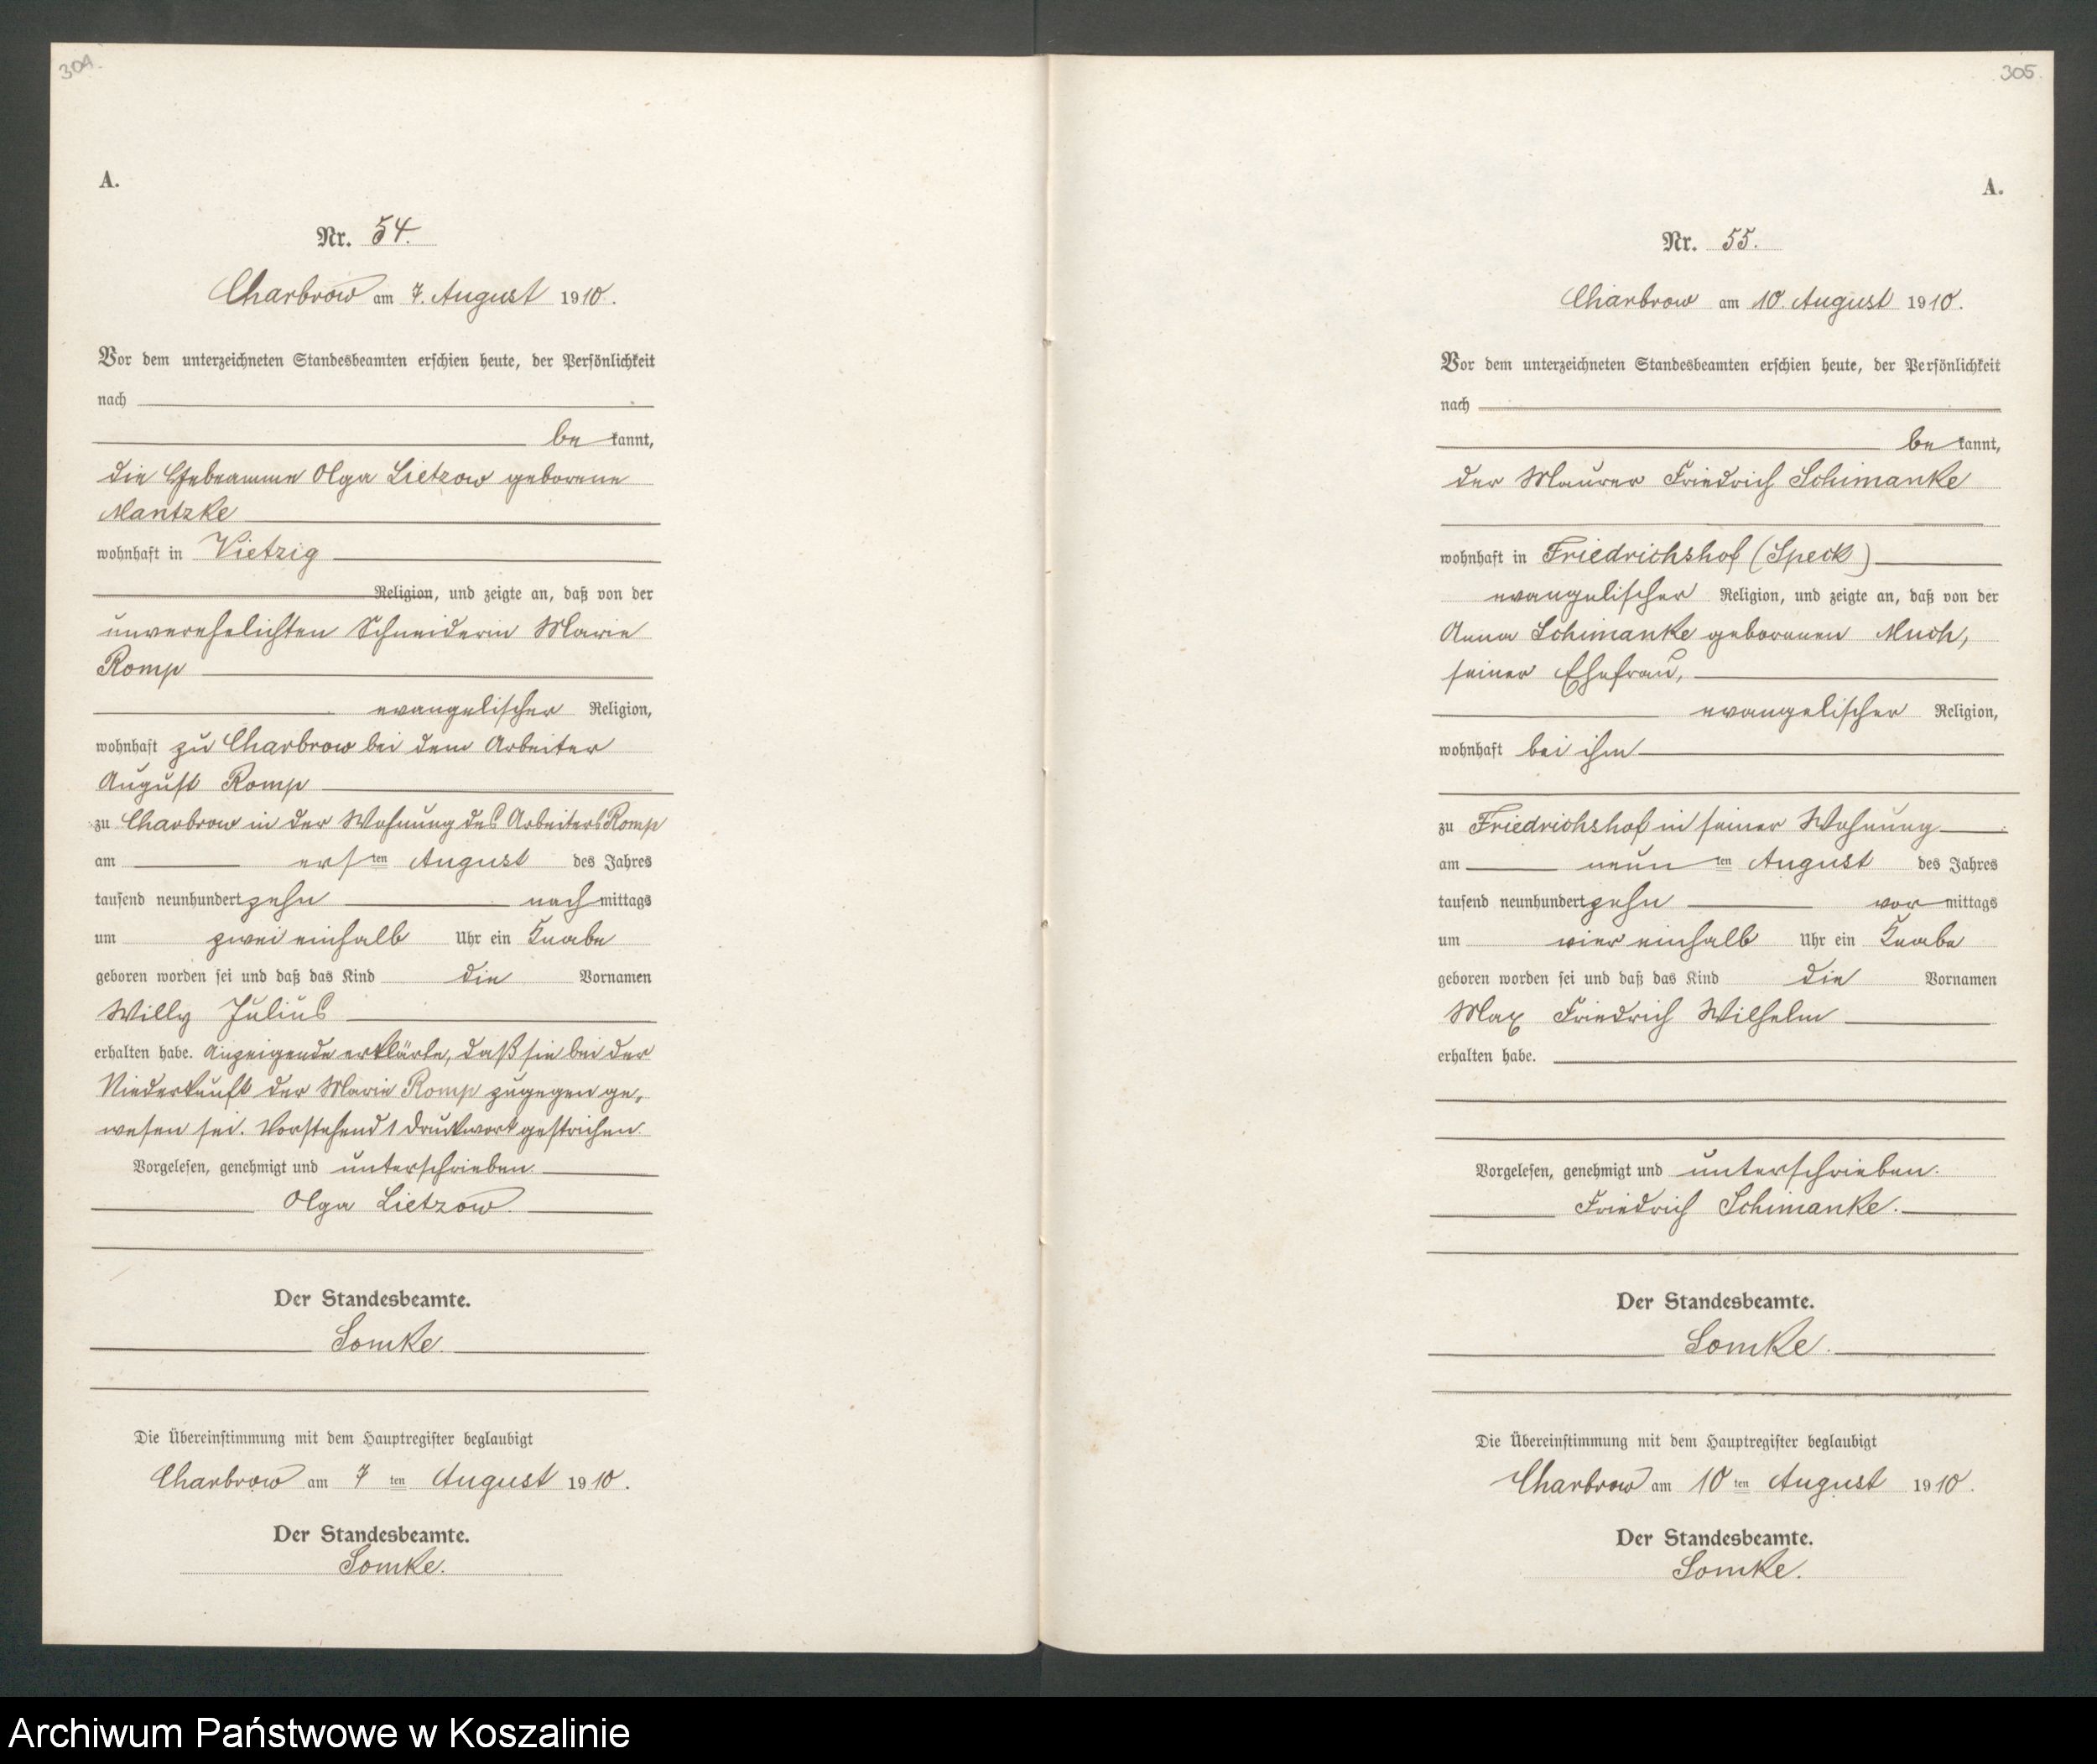 304.
A.
Nr. 54.
Charbrow am 7. August 1910.
Vor dem unterzeichneten Standesbeamten erschien heute, der Persönlichkeit
nach
be kannt,
die Hebeamme Olga Lietzow geborene
Mantzke
wohnhaft in Vietzig
Religion, und zeigte an, daß von der
unverehelichten Schneiderin Marie
Romp
evangelischer Religion,
wohnhaft zu Charbrow bei dem Arbeiter
August Romp
zu Charbrow in der Wohnung des Arbeiters Romp
am ersten August des Jahres
tausend neunhundertzehn nachmittags
um zwei einhalb Uhr ein Knabe
geboren worden sei und daß das Kind die Vornamen
Willy Julius
erhalten habe. Anzeigende erklärte, daß sie bei der
Niederkunft der Marie Romp zugegen ge-
wesen sei. Vorstehend 1 Druckwort gestrichen.
Vorgelesen, genehmigt und unterschrieben.
Olga Lietzow.
Der Standesbeamte.
Somke.
Die Übereinstimmung mit dem Hauptregister beglaubigt
Charbrow am 7 ten August 1910.
Der Standesbeamte.
Somke.
305
A.
Nr. 55.
Charbrow am 10. August 1910.
Vor dem unterzeichneten Standesbeamten erschien heute, der Persönlichkeit
nach
be kannt,
der Maurer Friedrich Schimanke
wohnhaft in Friedrichshof (Speck)
evangelischer Religion, und zeigte an, daß von der
Anna Schimanke geborenen Much,
seiner Ehefrau,
evangelischer Religion,
wohnhaft bei ihm
zu Friedrichshof in seiner Wohnung
am neunten August des Jahres
tausend neunhundertzehn vormittags
um vier einhalb Uhr ein Knabe
geboren worden sei und daß das Kind die Vornamen
Max Friedrich Wilhelm
erhalten habe.
Vorgelesen, genehmigt und unterschrieben.
Friedrich Schimanke.
Der Standesbeamte.
Somke.
Die Übereinstimmung mit dem Hauptregister beglaubigt
Charbrow am 10 ten August 1910.
Der Standesbeamte.
Somke.
Archiwum Państwowe w Koszalinie